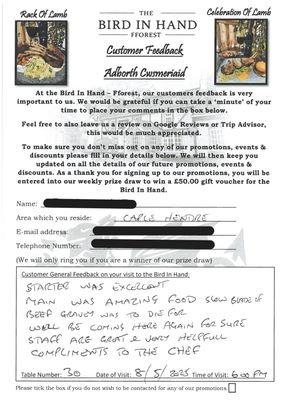 Rack Of Lamb
THE
BIRD IN HAND
FFOREST
Celebration Of Lamb
Customer Feedback
Adborth Cwsmeriaid
At the Bird In Hand – Fforest, our customers feedback is very
important to us. We would be grateful if you can take a 'minute' of your
time to place your comments in the box below.
Feel free to also leave us a review on Google Reviews or Trip Advisor,
this would be much appreciated.
To make sure you don't miss out on any of our promotions, events &
discounts please fill in your details below. We will then keep you
updated on all the details of our future promotions, events &
discounts. As a thank you for signing up to our promotions, you will be
entered into our weekly prize draw to win a £50.00 gift voucher for the
Bird In Hand.
Name:
Area which you reside: CAPLE HENDRE
E-mail address:
Telephone Number:
(We will only ring you if you are a winner of our prize draw)
Customer General Feedback on your visit to the Bird In Hand:
STARTER WAS EXCELLENT
MAIN WAS AMAZING FOOD SLOW BLADE OF
BEEF GRAVEY WAS TO DIE FOR
WELL BE COMING HERE AGAIN FOR SURE
STAFF ARE GROT & VERY HELPFULL
COMPLIMENTS TO THE CHEF
Table Number: 30 Date of Visit: 8/5/2025 Time of Visit: 6:00 PM
Please tick the box if you do not wish to be contacted for any of our promotions.